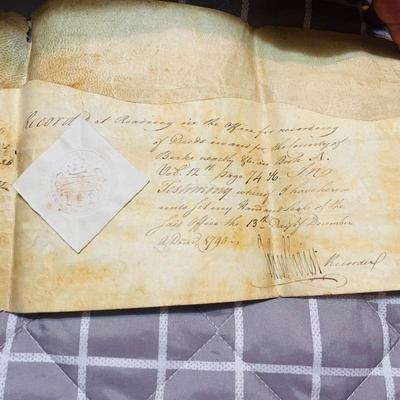 Recorded at Reading in the Office for recording
of Deeds in and for the County of
Berks &c. in Book A.
Vol. 12th page 74 &c. In
Testimony whereof I have here
unto set my Hand and seal of the
said Office the 13th Day of December
A Dom. 1790
Recorder